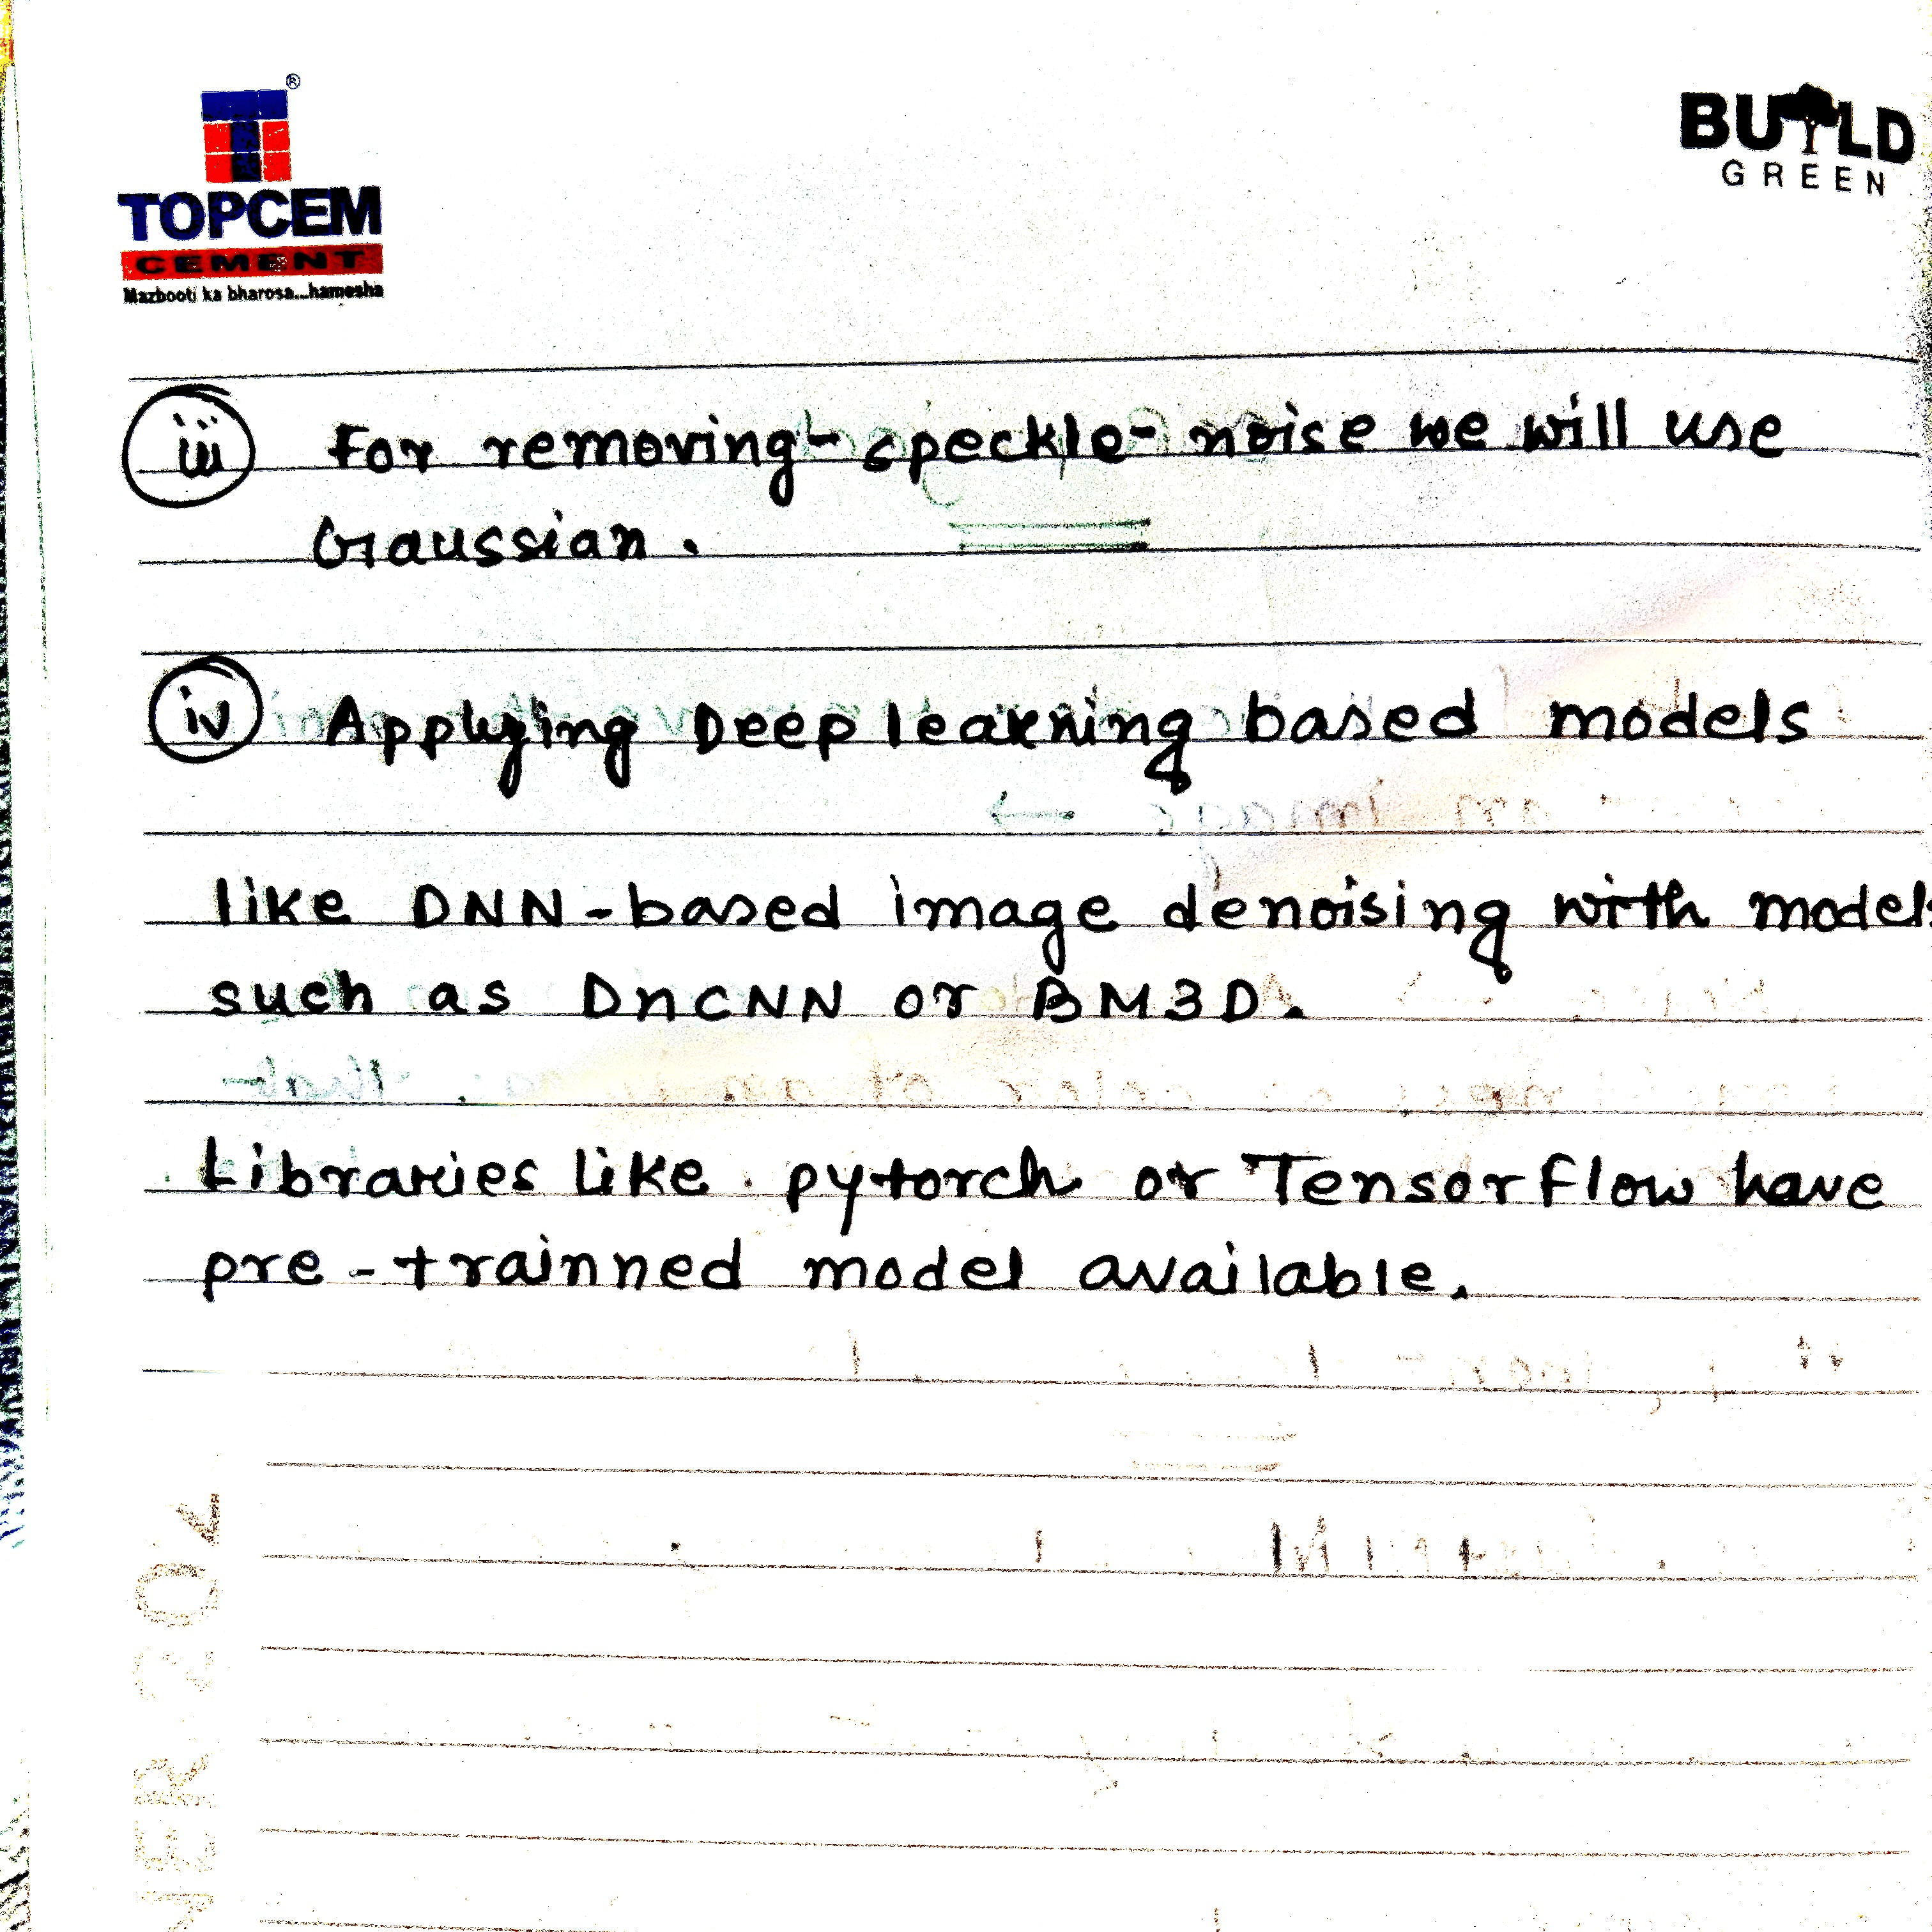 TOPCEM
CEMENT
Mazbooti ka bharosa...hamesha
BUILD
GREEN
iii For removing - speckle - noise we will use
Gaussian.
iv Applying Deep learning based models
like DNN-based image denoising with models
such as DnCNN or BM3D.
Libraries like pytorch or Tensorflow have
pre-trainned model available.